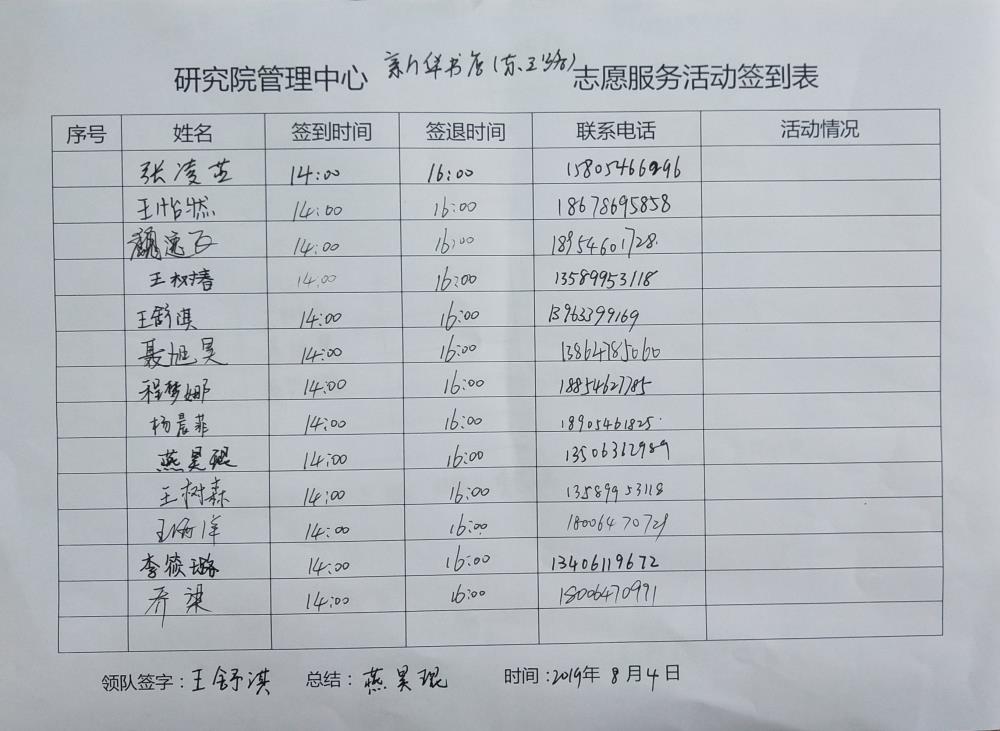 研究院管理中心 新华书店(东三路) 志愿服务活动签到表
序号 姓名 签到时间 签退时间 联系电话 活动情况
张凌芸 14:00 16:00 15805466296
王怡然 14:00 16:00 18678695858
魏逸飞 14:00 16:00 18954601728
王树春 14:00 16:00 13589953118
王舒淇 14:00 16:00 13963399169
聂旭昊 14:00 16:00 13864785060
程梦娜 14:00 16:00 18854627785
杨晨菲 14:00 16:00 18905461825
燕昊琨 14:00 16:00 13506362989
王树森 14:00 16:00 13589953118
14:00 16:00 18006470729
李筱璐 14:00 16:00 13406119672
乔梁 14:00 16:00 18006470991
领队签字:王舒淇 总结:燕昊琨 时间:2019年8月4日